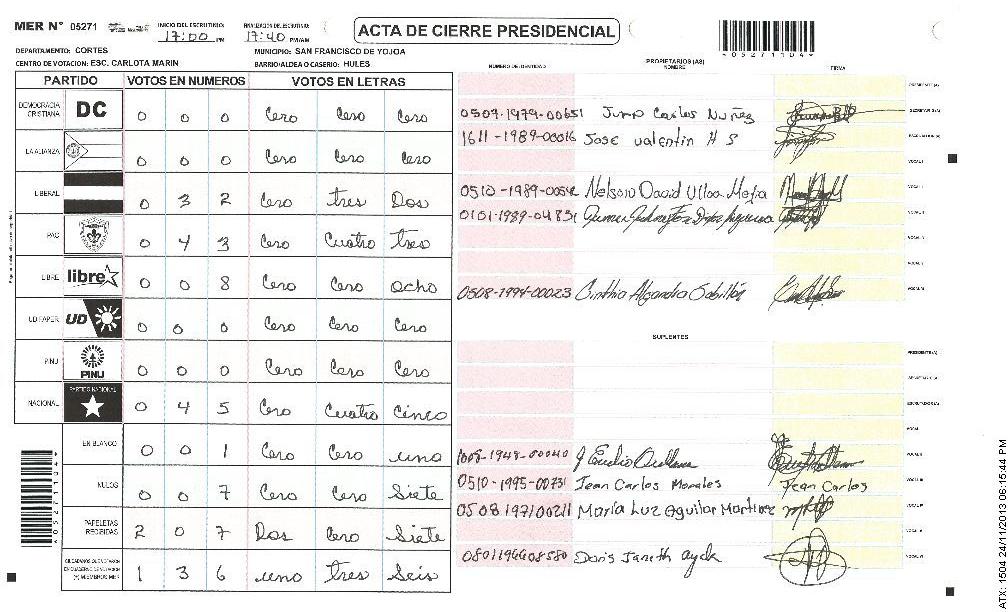 MER N° 05271 INICIO DEL ESCRUTINIO: 17:00 PM FINALIZACION DEL ESCRUTINIO: 17:40 PM/AM
ACTA DE CIERRE PRESIDENCIAL
*05271104*
DEPARTAMENTO: CORTES MUNICIPIO: SAN FRANCISCO DE YOJOA
CENTRO DE VOTACION: ESC. CARLOTA MARIN BARRIO/ALDEA O CASERIO: HULES
PARTIDO VOTOS EN NUMEROS VOTOS EN LETRAS
DEMOCRACIA CRISTIANA DC 0 0 0 Cero Cero Cero
LA ALIANZA 0 0 0 Cero Cero Cero
LIBERAL 0 3 2 Cero tres Dos
PAC 0 4 3 Cero Cuatro tres
LIBRE libre 0 0 8 Cero Cero ocho
UD FAPER UD 0 0 0 Cero Cero Cero
PINU PINU 0 0 0 Cero Cero Cero
NACIONAL PARTIDO NACIONAL 0 4 5 Cero Cuatro Cinco
EN BLANCO 0 0 1 Cero Cero uno
NULOS 0 0 7 Cero Cero Siete
PAPELETAS RECIBIDAS 2 0 7 Dos Cero Siete
1 3 6 uno tres Seis
NUMERO DE IDENTIDAD PROPIETARIOS (AS) NOMBRE FIRMA
PRESIDENTE (A)
0507-1979-00651 Juan Carlos Nuñez SECRETARIO (A)
1611-1989-00016 Jose valentin H S ESCRUTADOR (A)
VOCAL I
Nelson David Ulloa Mejia VOCAL II
VOCAL III
VOCAL IV
VOCAL V
0508-1994-00023 Cinthia Alejandra VOCAL VI
SUPLENTES
PRESIDENTE (A)
SECRETARIO (A)
ESCRUTADOR (A)
VOCAL I
J Eludio Orellana VOCAL II
0510-1995-00731 Jean Carlos Morales Jean Carlos VOCAL III
0508 197100211 Maria Luz Aguilar Martinez VOCAL IV
VOCAL V
Doris Janeth VOCAL VI
*05271104*
ATX: 1504 24/11/2013 06:15:44 PM